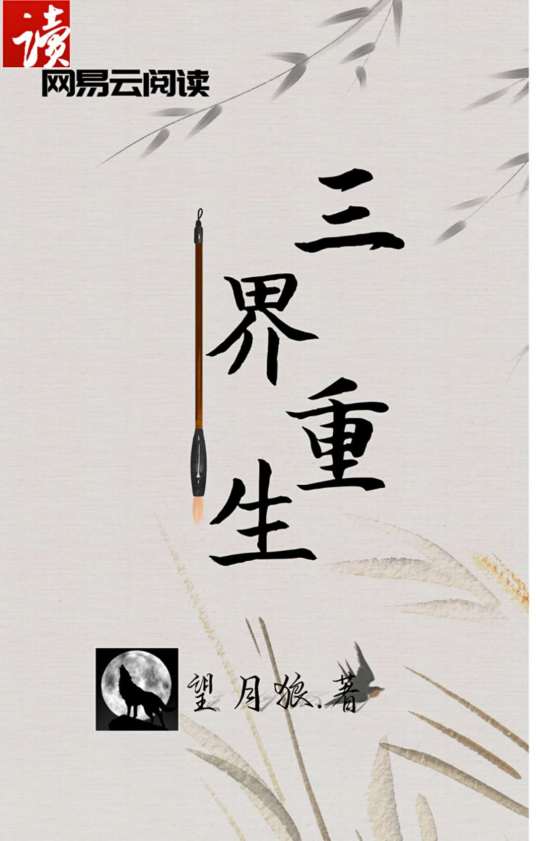 读
网易云阅读
三界重生
望月狼.著